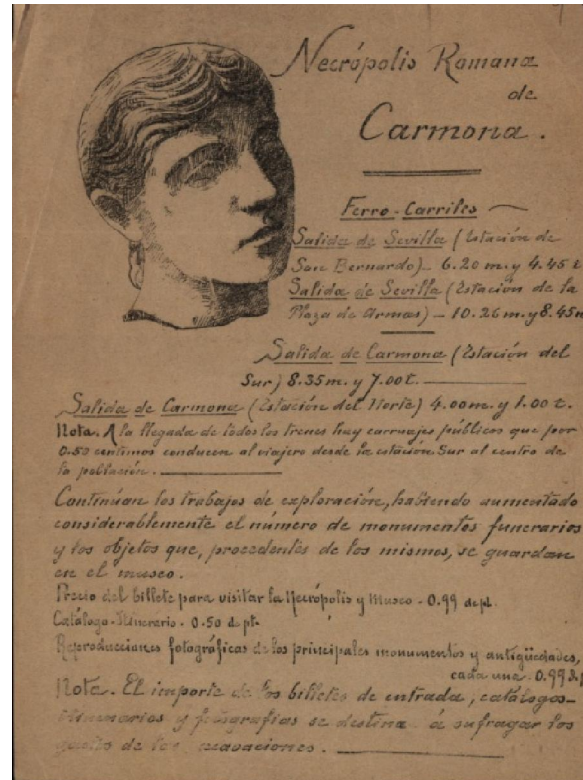 Necrópolis Romana
de
Carmona.
Ferro-Carriles
Salida de Sevilla (Estación de
San Bernardo) – 6.20 m. y 4.45 t
Salida de Sevilla (Estación de la
Plaza de Armas) – 10.26 m. y 8.45
Salida de Carmona (Estación del
Sur) 8.35 m. y 7.00 t.
Salida de Carmona (Estación del Norte) 4.00 m. y 1.00 t.
Nota. A la llegada de todos los trenes hay carruajes públicos que por
0.50 centimos conducen al viajero desde la estación Sur al centro de
la población.
Continúan los trabajos de exploración, habiendo aumentado
considerablemente el número de monumentos funerarios
y los objetos que, procedentes de los mismos, se guardan
en el museo.
Precio del billete para visitar la Necrópolis y Museo - 0.99 de pt.
Catálogo-Itinerario - 0.50 de pt.
Reproducciones fotográficas de los principales monumentos y antigüedades,
cada una - 0.99
Nota. El importe de los billetes de entrada, catálogos-
itinerarios y fotografías se destina á sufragar los
gastos de las excavaciones.